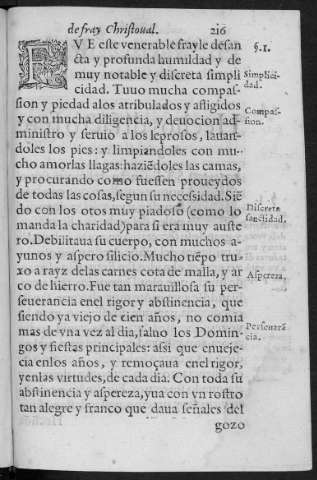 de fray Christoual. 216
FVE este venerable frayle de san
cta y profunda humildad y de
muy notable y discreta simpli
cidad. Tuuo mucha compas-
sion y piedad alos atribulados y afligidos
y con mucha diligencia, y deuocion ad-
ministro y seruio a los leprosos, lauan-
doles los pies: y limpiandoles con mu-
cho amor las llagas: haziẽdoles las camas,
y procurando como fuessen proueydos
de todas las cosas, segun su necessidad. Siẽ
do con los otos muy piadoso (como lo
manda la charidad) para si era muy auste
ro. Debilitaua su cuerpo, con muchos a-
yunos y aspero silicio. Mucho tiẽpo tru-
xo a rayz delas carnes cota de malla, y ar
co de hierro. Fue tan marauillosa su per-
seuerancia enel rigor y abstinencia, que
siendo ya viejo de cien años, no comia
mas de vna vez al dia, saluo los Domin-
gos y fiestas principales: assi que enueje-
cia enlos años, y remoçaua enel rigor,
y enlas virtudes, de cada dia. Con toda su
abstinencia y aspereza, yua con vn rostro
tan alegre y franco que daua señales del
gozo
§.1.
Simplici-
dad.
Compas-
sion.
Discreta
sanctidad.
Aspereza.
Perseuerã
cia.